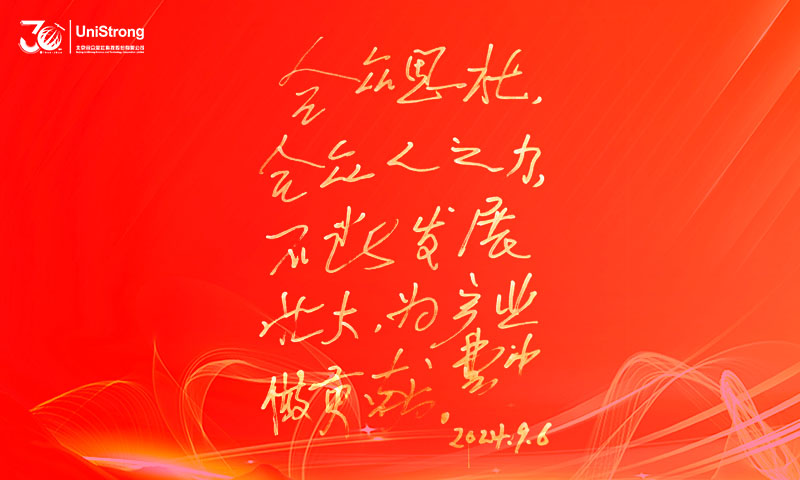 30
UniStrong
北京合众思壮科技股份有限公司
合众思壮,
合众人之力,
不断发展
壮大,为产业
做贡献。 曹冲
2024.9.6